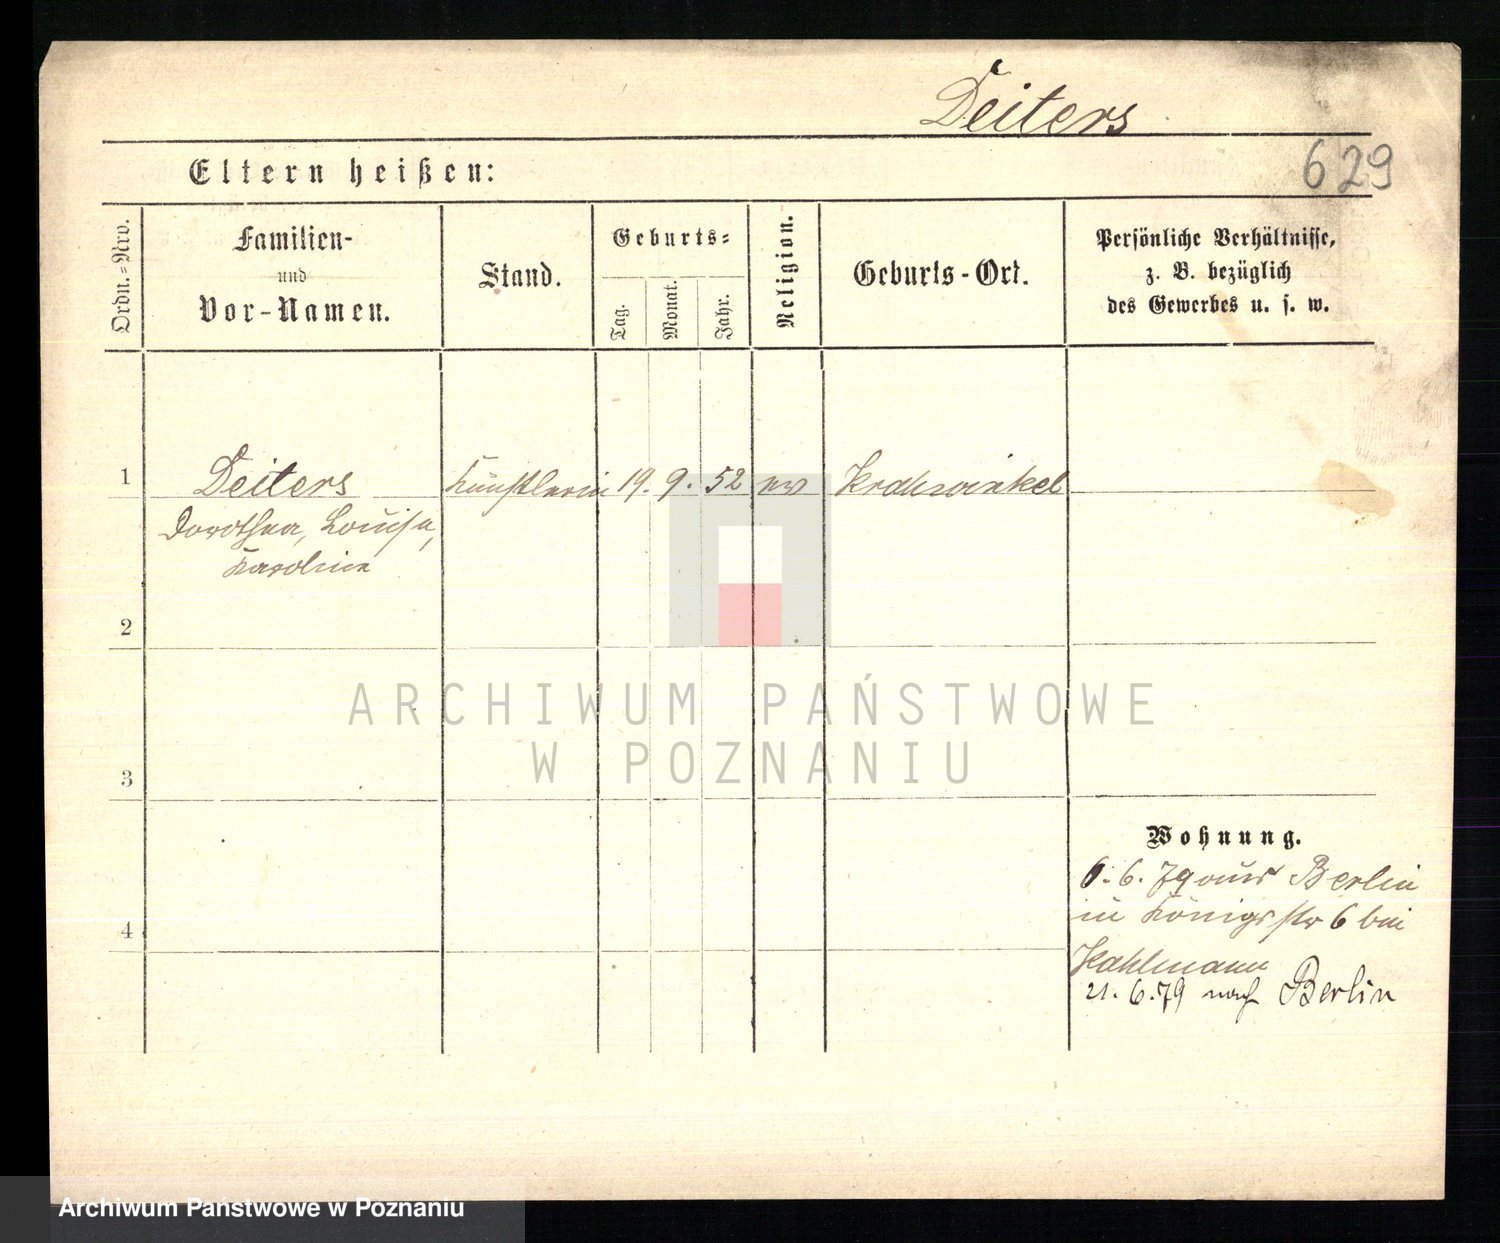 Deiters
629
Eltern heißen:
Ordn.-Nro.
Familien-
und
Vor-Namen.
Stand.
Geburts-
Tag.
Monat.
Jahr.
Religion.
Geburts-Ort.
Persönliche Verhältnisse,
z. B. bezüglich
des Gewerbes u. s. w.
1
Deiters
Künstlerin
19.
9.
52
ev
Krahwinkel
Dorothea, Louise,
Karoline
2
3
4
Wohnung.
6. 6. 79 aus Berlin
in Königsstr 6 bei
Kahlmann
21. 6. 79 nach Berlin
ARCHIWUM PAŃSTWOWE
W POZNANIU
Archiwum Państwowe w Poznaniu